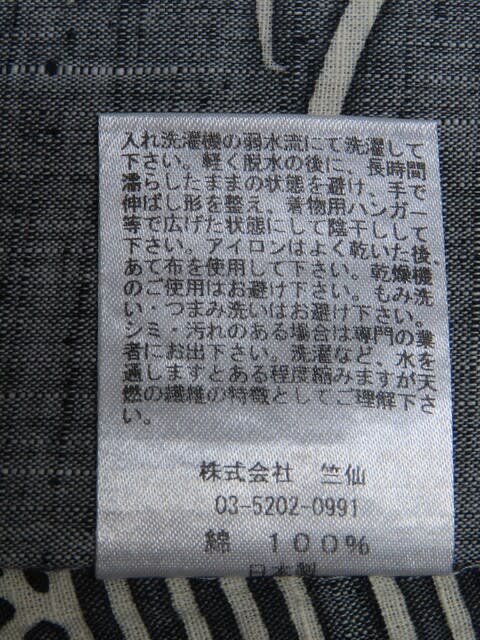 入れ洗濯機の弱水流にて洗濯して
下さい。軽く脱水の後に、長時間
濡らしたままの状態を避け、手で
伸ばし形を整え、着物用ハンガー
等で広げた状態にして陰干しして
下さい。アイロンはよく乾いた後、
あて布を使用して下さい。乾燥機
のご使用はお避け下さい。もみ洗
い・つまみ洗いはお避け下さい。
シミ・汚れのある場合は専門の業
者にお出下さい。洗濯など、水を
通しますとある程度縮みますが天
燃の繊維の特徴としてご理解下さ
い。
株式会社 竺仙
03-5202-0991
綿 100%
日本製